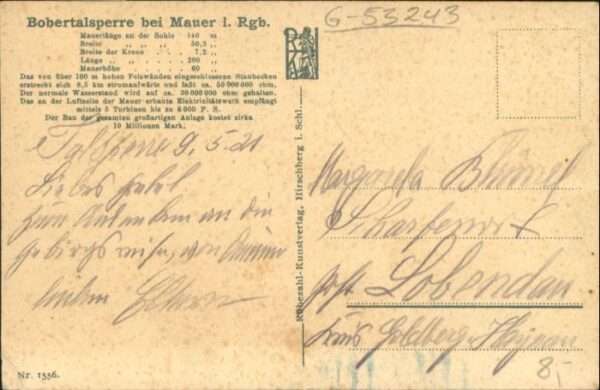 Bobertalsperre bei Mauer i. Rgb.
Mauerlänge an der Sohle 140 m
Breite „ „ „ 50,5 „
Breite der Krone „ 7,2 „
Länge „ „ 280 „
Mauerhöhe „ 60 „
Das von über 100 m hohen Felswänden eingeschlossene Staubecken
erstreckt sich 8,5 km stromaufwärts und faßt ca. 50 000 000 cbm.
Der normale Wasserstand wird auf ca. 20 000 000 cbm gehalten.
Das an der Luftseite der Mauer erbaute Elektrizitätswerk empfängt
mittels 5 Turbinen bis zu 8000 P. S.
Der Bau der gesamten großartigen Anlage kostet zirka
10 Millionen Mark.
G-53243
Talsperre 9. 5. 21
Liebes
Zum Andenken an die
Gebirgsreise, von Deinen
lieben Eltern
Rübezahl-Kunstverlag, Hirschberg i. Schl.
Post Lobendau
Kreis Goldberg-Haynau
8,-
Nr. 1336.